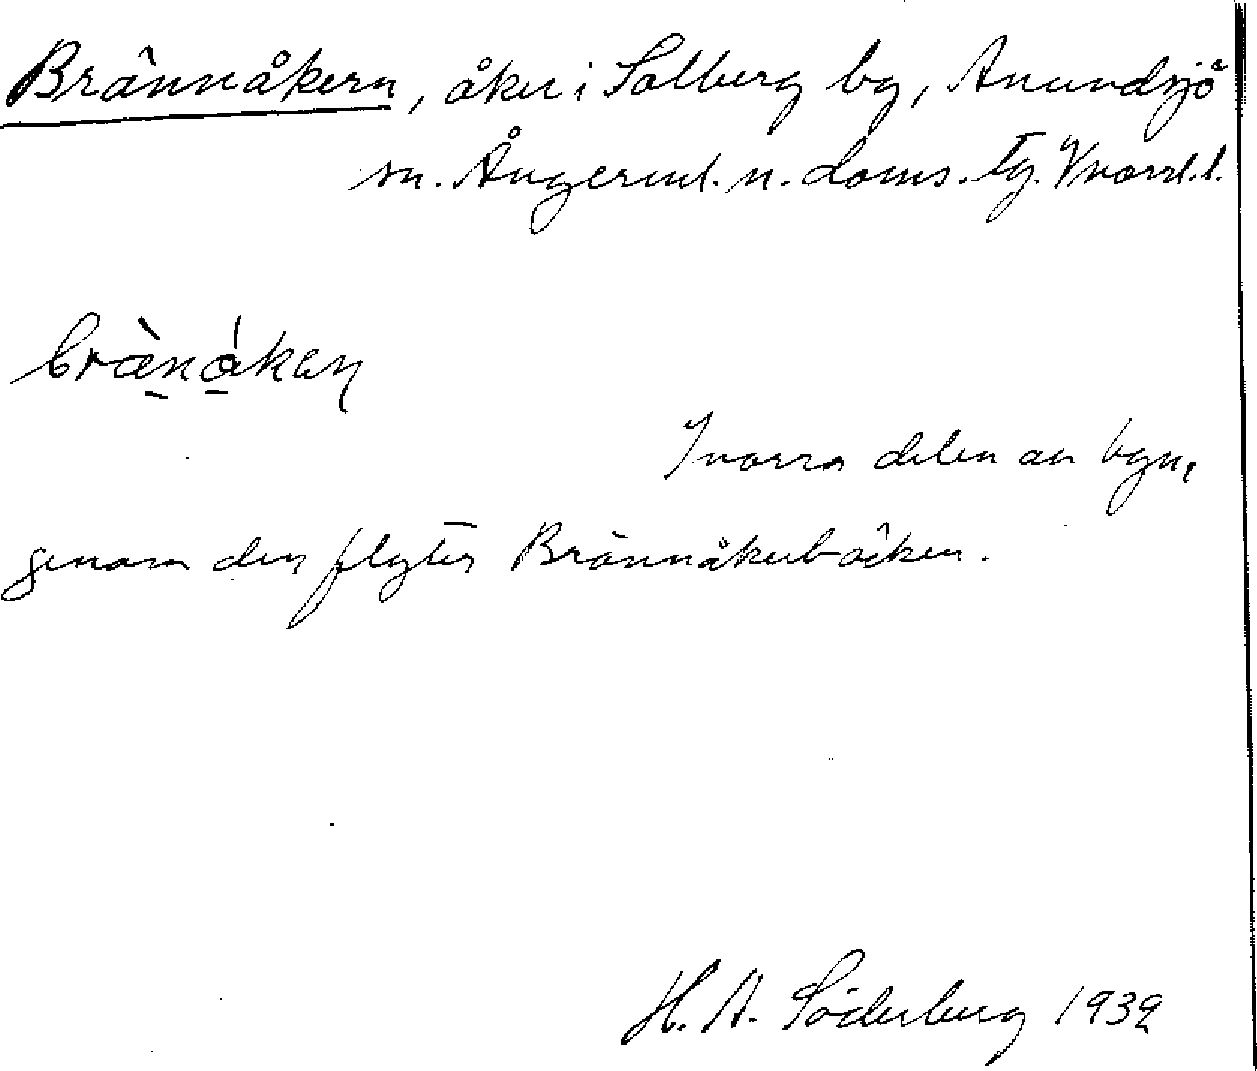 Brännåkern, åker i Solberg by, Anundsjö
sn. Ångerml. n. doms. tg. Vnorrl. l.
brænåkaɳ
I norra delen av byn,
genom den flyter Brännåkerbäcken.
H. A. Söderberg 1932